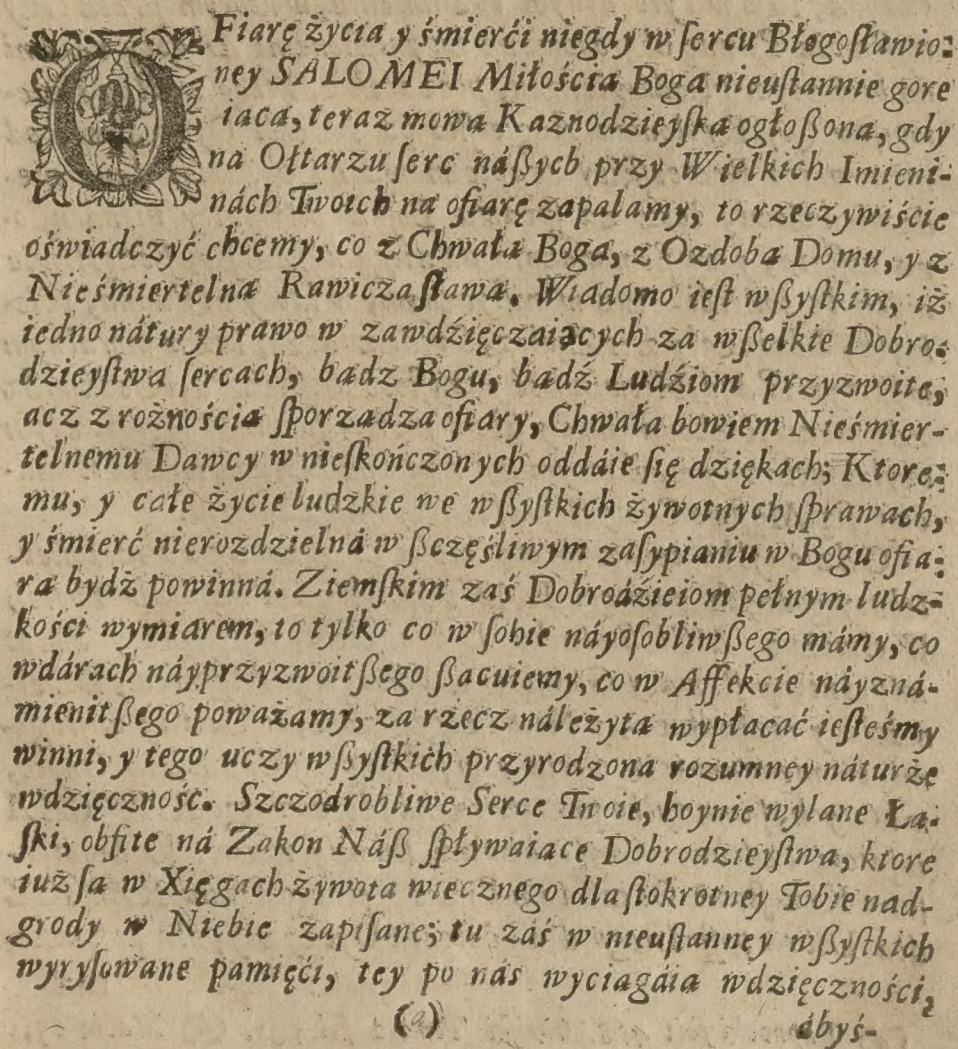 OFiarę życia y śmierći niegdy w ſercu Błogoſławio-
ney SALOMEI Miłośćia Boga nieuſtannie gore
iaca, teraz mowa Kaznodzieyſka ogłoßona, gdy
na Ołtarzu ſerc náßych przy Wielkich Imieni-
nách Twoich na ofiarę zapalamy, to rzeczywiście
oświadczyć chcemy, co z Chwała Boga, z Ozdoba Domu, y z
Nieśmiertelna Rawicza ſława. Wiadomo ieſt wßyſtkim, iż
iedno nátury prawo w zawdźięczaiących za wßelkie Dobro-
dzieyſtwa ſercach, badz Bogu, badź Ludźiom przyzwoite,
acz z rożnościa ſporzadza ofiary, Chwała bowiem Nieśmier-
telnemu Dawcy w nieſkończonych oddáie ſię dziękach; Ktore-
mu, y całe życie ludzkie we wßyſtkich żywotnych ſprawach,
y śmierć nierozdzielná w ßczęśliwym zaſypianiu w Bogu ofia-
ra bydź powinná. Ziemſkim zaś Dobrodźieiom pełnym ludz-
kości wymiarem, to tylko co w ſobie náyoſobliwßego mámy, co
wdárach náyprzyzwoitßego ßacuiemy, co w Affekcie náyzná-
mienitßego poważamy, za rzecz náleżyta wypłacać ieſteśmy
winni, y tego uczy wßyſtkich przyrodzona rozumney náturże
wdzięczność. Szczodrobliwe Serce Twoie, hoynie wylane Ła-
ſki, obfite ná Zakon Náß ſpływaiace Dobrodzieyſtwa, ktore
iuż ſa w Xięgach żywota wiecznego dla ſtokrotney Tobie nad-
grody w Niebie zapiſane; tu záś w nieuſtanney wßyſtkich
wyryſowane pamięći, tey po nas wyciagáia wdzięczności,
(a)
ábyś-